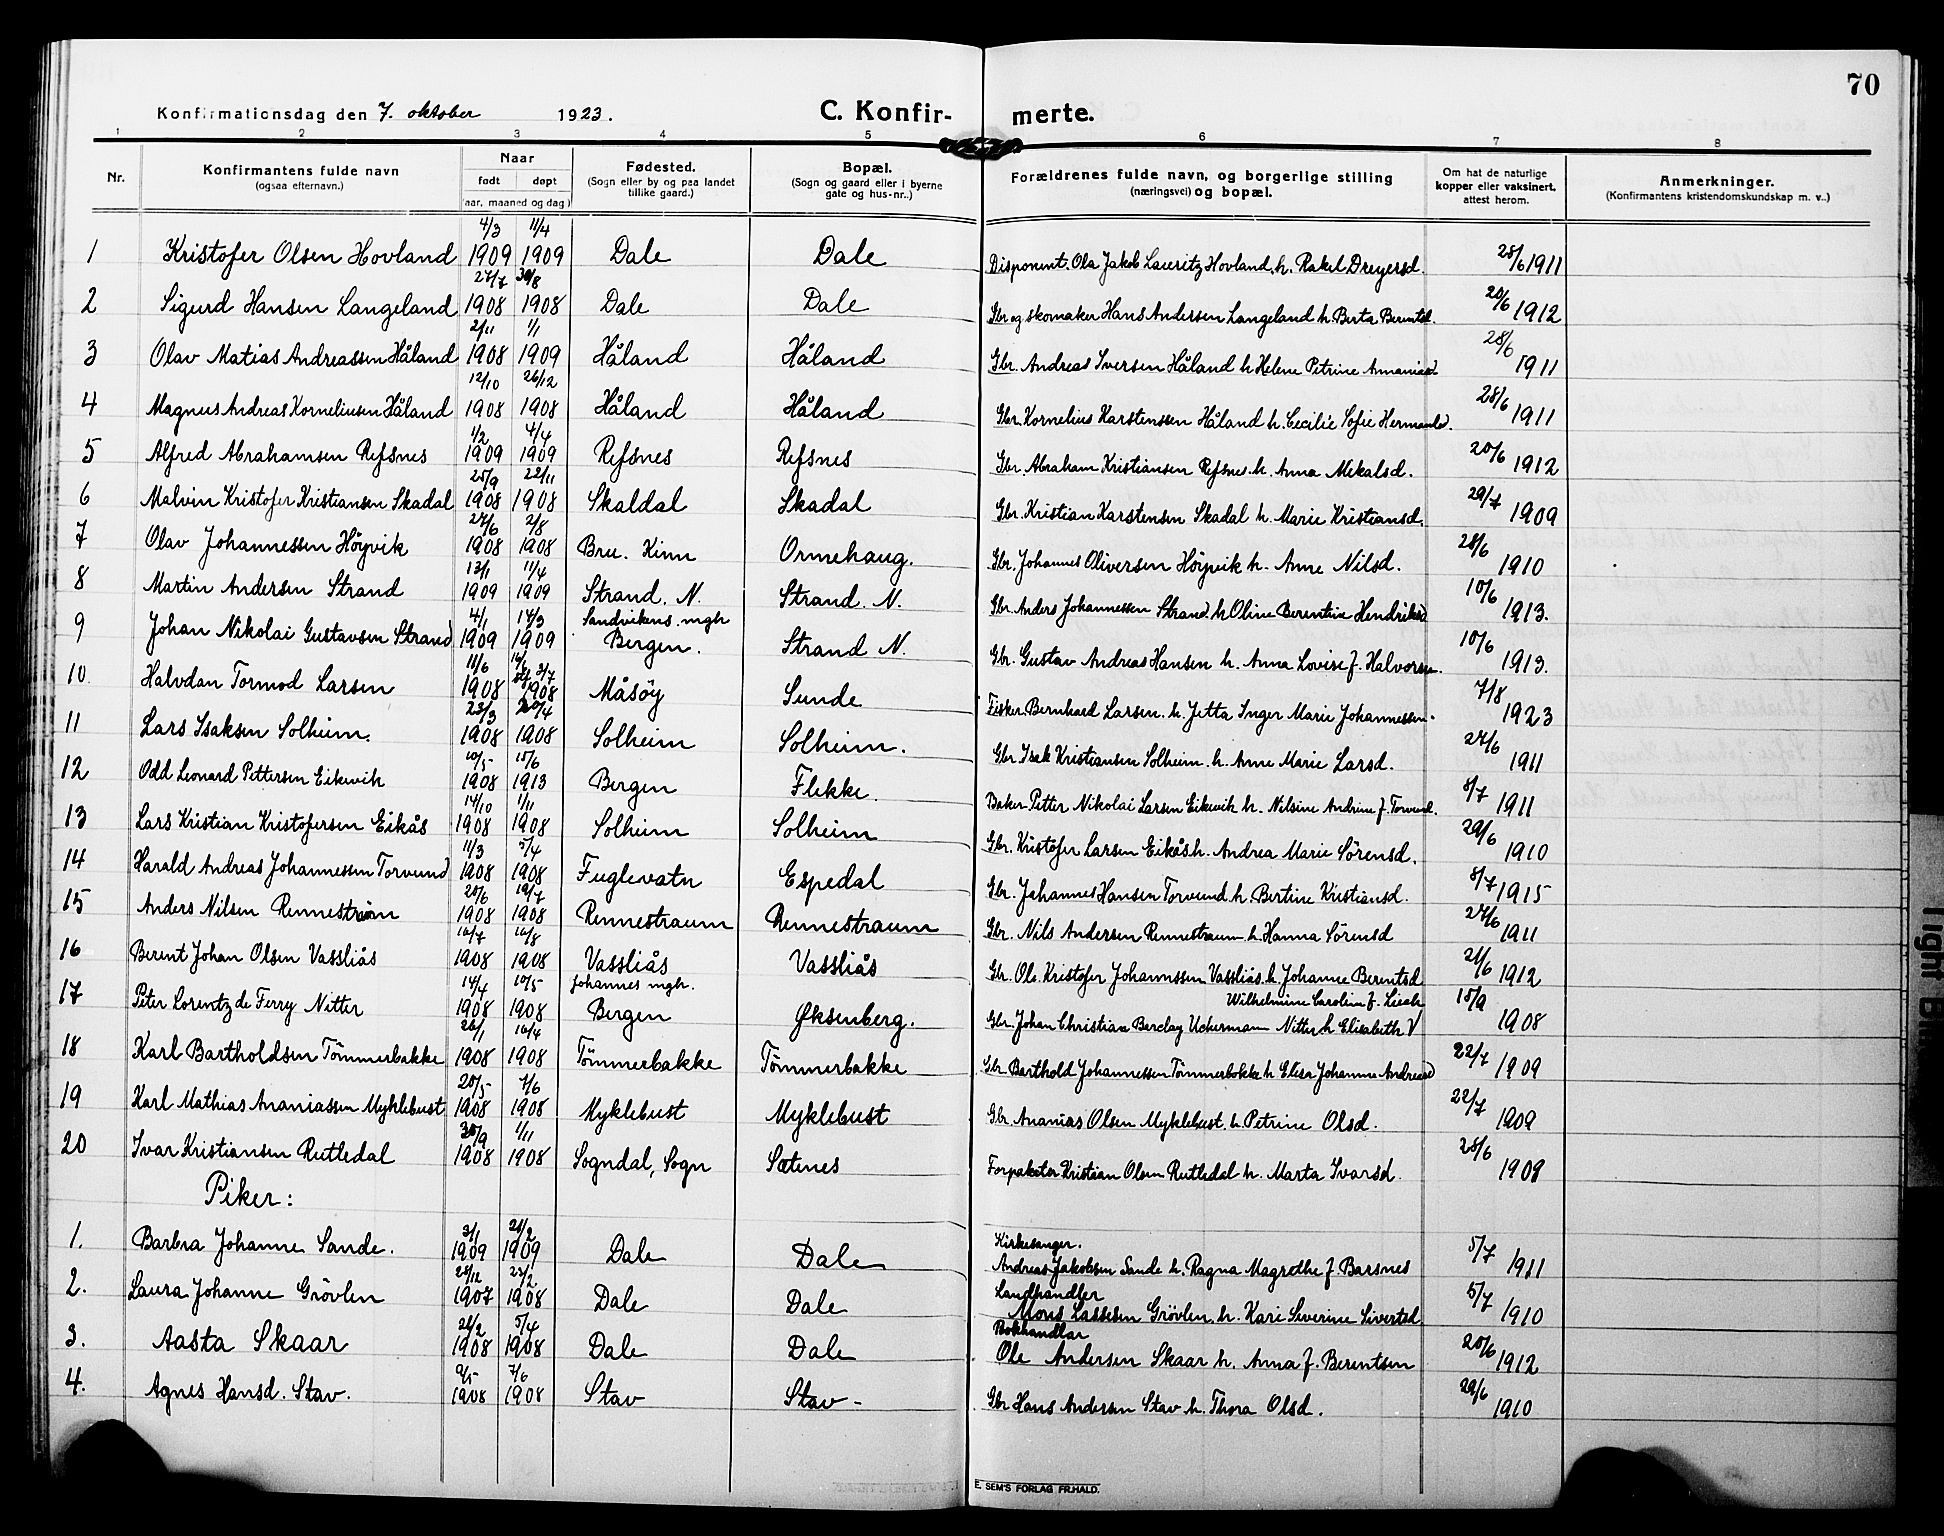 70
Konfirmationsdag den 7. oktober 1923. C. Konfir- merte.
1 2 3 4 5 6 7 8
Nr. Konfirmantens fulde navn (ogsaa efternavn.) Naar født døpt (aar, maaned og dag) Fødested. (Sogn eller by og paa landet tillike gaard.) Bopæl. (Sogn og gaard eller i byerne gate og hus-nr..) Forældrenes fulde navn, og borgerlige stilling (næringsvei) og bopæl. Om hat de naturlige kopper eller vaksinert, attest herom. Anmerkninger. (Konfirmantens kristendomskundskap m. v..)
1 Kristofer Olsen Hovland 4/3 1909 11/4 1909 Dale Dale Disponent. Ola Jakob Lauritz Hovland, h. Rakel Dreyersd. 28/6 1911
2 Sigurd Hansen Langeland 27/7 1908 30/8 1908 Dale Dale Gbr og skomaker Hans Andersen Langeland h. Berta Berentsd. 20/6 1912
3 Olav Matias Andreassen Håland 2/11 1908 1/1 1909 Håland Håland Gbr. Andreas Iversen Håland h Helene Petrine Ananiasd 28/6 1911
4 Magnus Andreas Korneliusen Håland 12/10 1908 26/12 1908 Håland Håland Gbr. Kornelius Karstenssen Håland h. Cecilie Sofie Hermansd. 28/6 1911
5 Alfred Abrahamsen Refsnes 1/2 1909 4/4 1909 Refsnes Refsnes Gbr. Abraham Kristiansen Refsnes. h. Anna Mekalsd. 20/6 1912
6 Malvin Kristofer Kristiansen Skadal 25/9 1908 22/11 1908 Skaldal Skadal Gbr. Kristian Karstensen Skadal h. Marie Kristiansd. 29/7 1909
7 Olav Johannessen Höyvik 24/6 1908 2/8 1908 Bru. Kinn Ormehaug. Gbr. Johannes Oliversen Höyvik h. Anne Nilsd. 28/6 1910
8 Martin Andersen Strand 13/1 1909 11/4 1909 Strand. N. Strand. N. Gbr. Anders Johannessen Strand. h Oline Berentine Hendriksd 10/6 1913.
9 Johan Nikolai Gustavsen Strand 4/1 1909 14/3 1909 Sandvikens. mgh Bergen. Strand N. Gbr. Gustav Andreas Hansen h. Anna Lovise f. Halvorsen. 10/6 1913.
10. Halvdan Tormod Larsen 11/6 1908 3/7 1908 Måsöy Sunde Fisker Bernhard Larsen. h. Jetta Inger Marie Johannessen. 7/8 1923
11 Lars Isaksen Solheim. 23/3 1908 20/4 1908 Solheim Solheim. Gbr. Isak Kristiansen Solheim. h. Anne Marie Larsd. 24/6 1911
12 Odd Leonard Pettersen Eikevik 10/5 1908 15/6 1913 Bergen Flekke. Baker Petter Nikolai Larsen Eikevik h. Nilsine Andrine f. Torvund. 8/7 1911
13 Lars Kristian Kristofersen Eikås 14/10 1908 1/11 1908 Solheim Solheim Gbr. Kristofer Larsen Eikås h. Andrea Marie Sörensd. 29/6 1910
14 Harald Andreas Johannessen Torvund 11/3 1908 5/4 1908 Fuglevatn Espedal Gbr. Johannes Hansen Torvund h. Bertine Kristiansd. 8/7 1915
15 Anders Nilsen Rennestraum 28/6 1908 19/7 1908 Rennestraum Rennestraum Gbr. Nils Andersen Rennestraum. h. Hanna Sörensd 24/6 1911
16 Berent Johan Olsen Vassliås 16/7 1908 16/8 1908 Vassliås Vassliås Gbr. Ole Kristofer Johannssen Vassliås. h Johanne Berentsd 21/6 1912
17 Peter Lorentz de Ferry Nitter 14/4 1908 10/5 1908 Johannes mgh. Bergen Øksenberg. Gbr. Johan Christian Berclay Uckermann Nitter h Elisabeth V Wilhelmine Caroline f. 15/9 1908
18 Karl Bartholdsen Tömmerbakke 26/1 1908 16/4 1908 Tömmerbakke Tömmerbakke Gbr. Barthold Johannessen Tömmerbakke h Elisa Johanne Andreasd 22/7 1909
19 Karl Mathias Ananiassen Myklebust 20/5 1908 7/6 1908 Myklebust Myklebust Gbr. Ananias Olsen Myklebust. h. Petrine Olsd. 22/7 1909
20 Ivar Kristiansen Rutledal 30/9 1908 1/11 1908 Sogndal, Sogn Sætenes Forpakter Kristian Olsen Rutledal h. Marta Ivarsd. 28/6 1909
Piker:
1. Barbra Johanne Sande. 3/1 1909 21/2 1909 Dale Dale Kirkesanger. Andreas Jakobsen Sande h. Ragna Magrethe f. Barsnes 5/7 1911
2. Laura Johanne Grövlen 28/12 1907 23/2 1908 Dale Dale Landhandler Mons Lassesen Grövlen. h. Kari Severine Sivertsd 5/7 1910
3. Aasta Skaar 21/2 1908 5/4 1908 Dale Dale Bokhandlar Ole Andersen Skaar h. Anna f. Berentsen 20/6 1912
4. Agnes Hansd. Stav. 9/5 1908 7/6 1908 Stav Stav - Gbr Hans Andersen Stav h. Thora Olsd. 29/6 1910
E. SEM'S FORLAG FR.HALD.